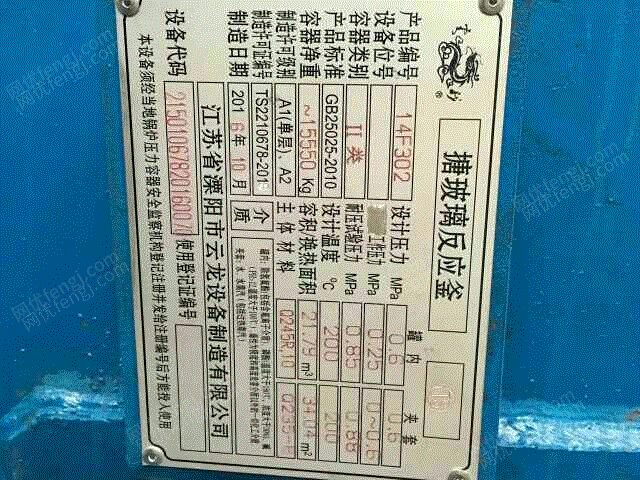 搪玻璃反应釜
产品编号 14F302
设备位号
容器类别 II类
产品标准 GB25025-2010
容器净重 ~15550Kg
制造许可级别 A1(单层)、A2
制造许可编号 TS2210678-201
制造日期 2016年10月
罐内 夹套
设计压力 MPa 0.6 0.6
工作压力 MPa 0.25 0~0.6
耐压试验压力 MPa 0.85 0.88
设计温度 ℃ 200 200
容积/换热面积 21.79m³ 34.04m²
主体材料 Q245R,10 Q235-
介质
江苏省溧阳市云龙设备制造有限公司
设备代码 215010678201600
使用登记证编号
本设备须经当地锅炉压力容器安全监察机构登记注册并发给注册编号后方能投入使用